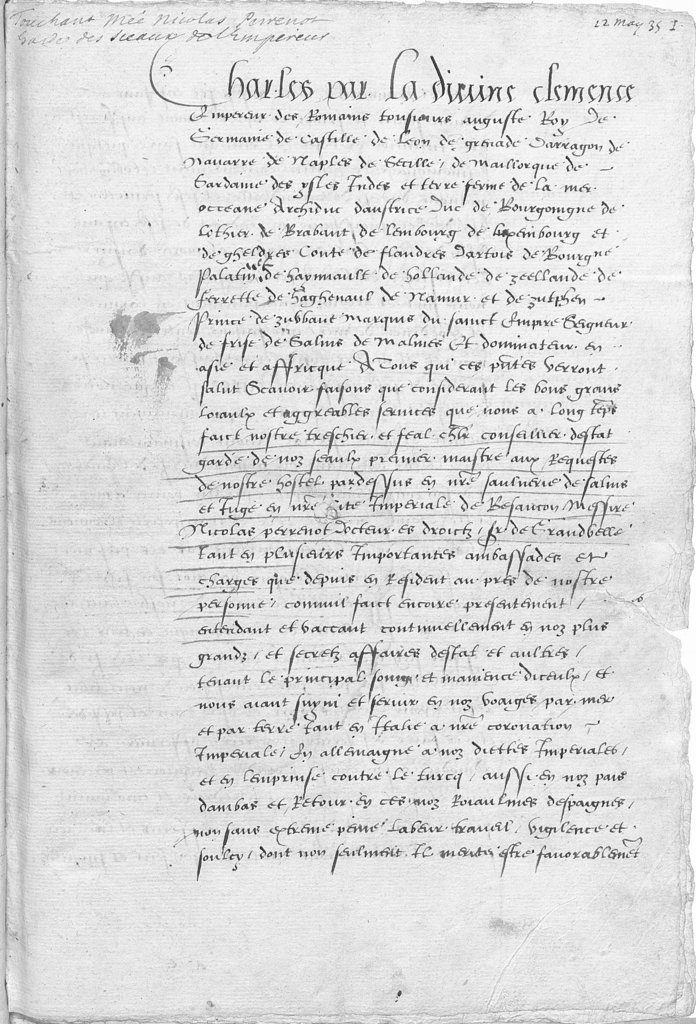 Touchant Mre Nicolas Perrenot
Garde des Sceaux de l'Empereur
12 may 35 I
Charles par la divine clemence
Empereur des Romains tousiours auguste Roy de
Germanie de Castille de Leon de grenade Darragon de
Navarre de Naples de Secille, de Maillorque de
Sardaine des ysles Indes et terre ferme de la mer
occeane Archiduc daustrice Duc de Bourgoingne de
Lothier de Brabant de lembourg de luxembourg et
de gheldres Conte de flandres dartois de Bourgne
Palatin de haynnault de hollande de zeellande de
ferrette de haghenault de Namur et de zutphen
Prince de zuvbane marquis du sainct Empire Seigneur
de frise de Salins de Malines Et dominateur en
asie et affricque A Tous qui ces pntes verront
salut Scavoir faisons que considerant les bons grans
loiaulx et aggreables services que nous a long teps
faict nostre treschier et feal chlr conseillier destat
garde de noz seaulx premier maistre aux Requestes
de nostre hostel pardessus en nre saulnerie de salins
et Juge en nre Cite Imperiale de Besancon, Messire
Nicolas perrenot docteur es droictz, sr de Grandvelle
tant en plusieurs Importantes ambassades et
charges que depuis en Resident au pres de nostre
personne, comme il faict encoire presentement,
entendant et vaccant continuellement en noz plus
grandz, et secretz affaires destat et aultres,
tenant le principal soing et manience diceulx, et
nous aiant suyvi et servi en noz voaiges par mer
et par terre tant en Italie a nre coronation
Imperiale, En allemaigne a noz diettes Imperiales,
et en lemprinse contre le turcq, aussi en noz pais
dambas et Retour en ces noz Roiaulmes despaignes,
non sans extreme peine labeur traveil, vigilence et
soulcy, dont non seulment Il merite estre favorablemet